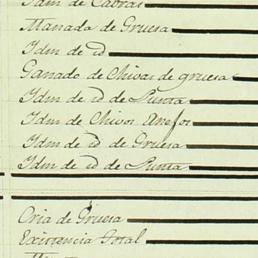 Idm de Cabras
Manada de Gruesa
Idm de id
Ganado de Chivas de gruesa
Idm de id de Punta
Idm de Chivos Añejos
Idm de id de Gruesa
Idm de id de Punta
Cria de Gruesa
Existencia Total